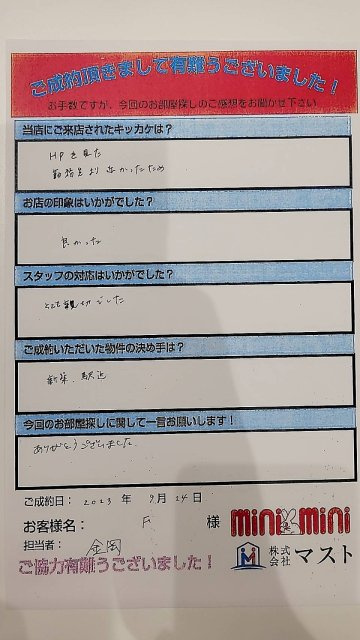 ご成約頂きまして有難うございました！
お手数ですが、今回のお部屋探しのご感想をお聞かせ下さい
当店にご来店されたキッカケは？
HPを見た
勤務先より近かったため
お店の印象はいかがでした？
良かった
スタッフの対応はいかがでした？
とても親切でした
ご成約いただいた物件の決め手は？
新築、駅近
今回のお部屋探しに関して一言お願いします！
ありがとうございました。
ご成約日： 2023 年 9月 24日
お客様名： F 様
minimini
担当者： 金岡
株式会社 マスト
ご協力有難うございました！